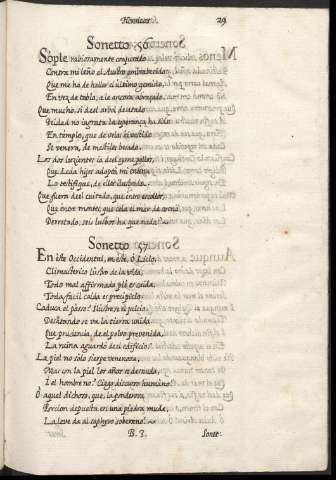 29
Sonetto 56
Sople rabiosamente conjurado
Contra mi leño el Austro embravecido
Que me ha de hallar el ultimo gemido,
En vez de tabla, a le ancora abraçado.
Que mucho, si del arbol desatado
Deidad no ingrata la esperança ha sido
En templo, que de velas
Se venera, de mastiles besado.
Los dos luzientes
Que Leda hijos adoptò, mi entena
Lo testifique,
Que fuera del cuitado, que entre escollos
Que entre montes, que cela el mar de arena
Derrotado, seis lustros ha que nada?
Sonetto 57
En este Occidental, en este, ô Licio,
Climacterico lustro de tu vida,
Todo mal affirmado pie es caida,
Toda facil caida es precipicio.
Caduca el passo? Illustrese el juicio.
Desatando se va la tierra unida
Que prudencia, del polvo prevenida,
La ruina aguardò del edificio?
La piel no solo sierpe venenosa,
Mas con la piel los años se desnuda,
I el hombre no? Ciego discurso humano!
Ô aquel dichoso, que, la ponderosa
Porcion depuesta en una piedra muda,
La leve da al zaphyro soberano!
B. 3.
Sonet